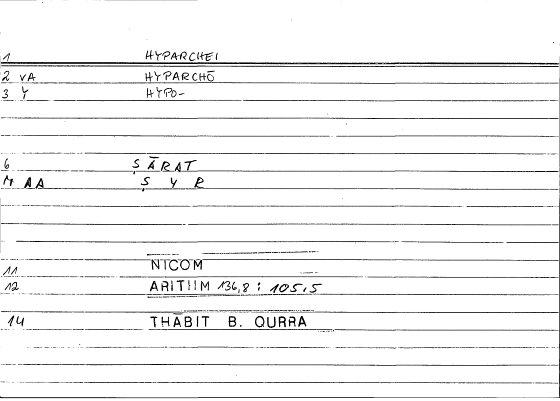 1 HYPARCHEI
2 VA HYPARCHŌ
3 Y HYPO-
6 ṢĀRAT
M AA Ṣ Y R
11 NICOM
12 ARITIIM 136,8 : 105,5
14 THĀBIT B. QURRA